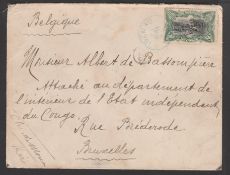 Belgique
Monsieur Albert de Bassompierre
Attaché au département de
l'intérieur de l'Etat indépendant
du Congo.
Rue Bréderode
Bruxelles